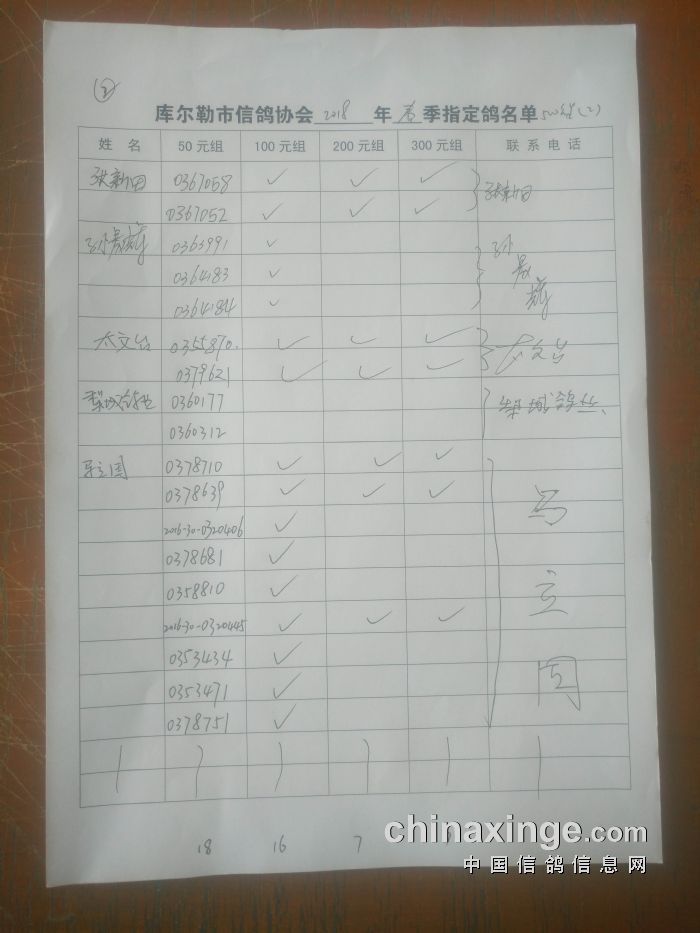 ②
库尔勒市信鸽协会 2018 年 春 季指定鸽名单 (2)
姓 名 50元组 100元组 200元组 300元组 联系电话
张新田 0367058 ✓ ✓ ✓ 张新田
0367052 ✓ ✓ ✓
0363991 ✓
0364183 ✓
0364184 ✓
0355870 ✓ ✓ ✓
0379621 ✓ ✓ ✓
梨城鸽业 0360177 梨城鸽业
0360312
马立国 0378710 ✓ ✓ ✓ 马立国
0378639 ✓ ✓ ✓
2016-30-0320406 ✓
0378681 ✓
0358810 ✓
2016-30-0320445 ✓ ✓ ✓
0353434 ✓
0353471 ✓
0378751 ✓
18 16 7
chinaxinge.com
中国信鸽信息网